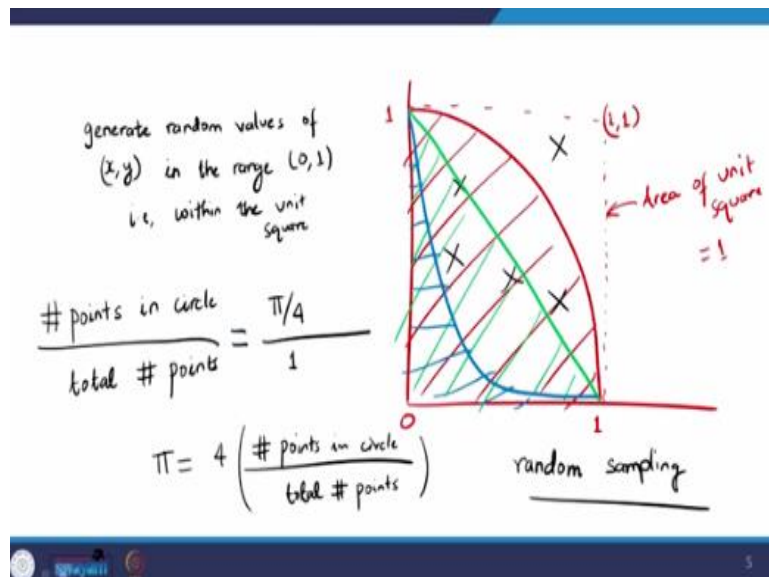 generate random values of
(x,y) in the range (0,1)
i.e, within the unit
square
# points in circle
total # points
=
π/4
1
π = 4 ( # points in circle
total # points )
1
(1,1)
Area of unit
square
= 1
0
1
random sampling
swayam
5